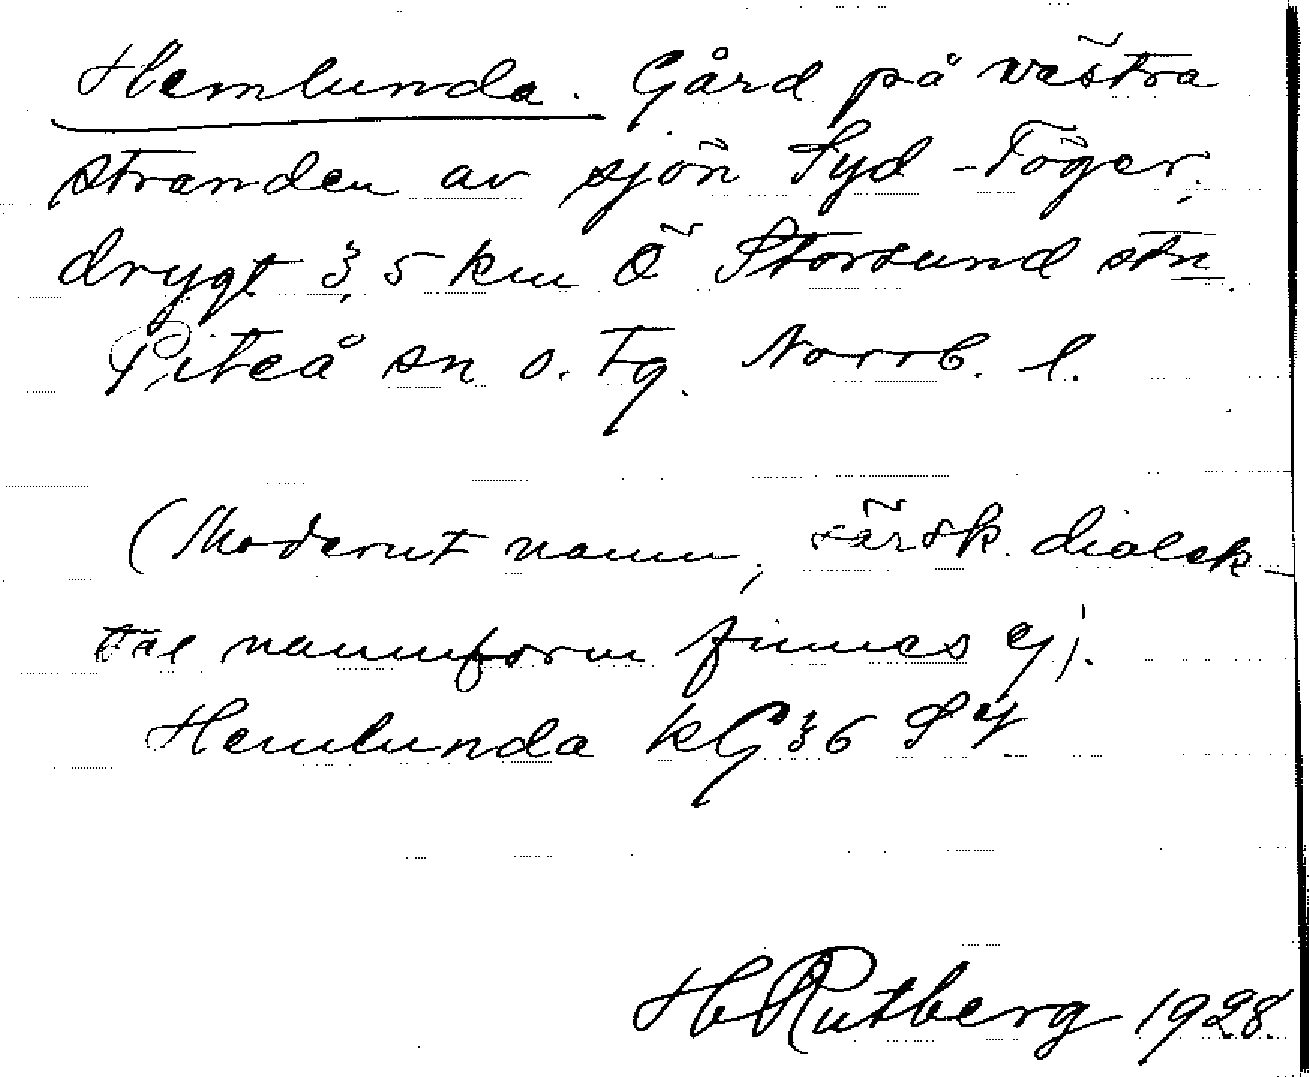 Hemlunda. Gård på västra
stranden av sjön Syd-Töger,
drygt 3,5 km Ö Storsund stn.
Piteå sn o. tg. Norrb. l.
(Modernt namn, särsk. dialek-
tal namnform finnes ej).
Hemlunda kG 36 S4
H Rutberg 1928.